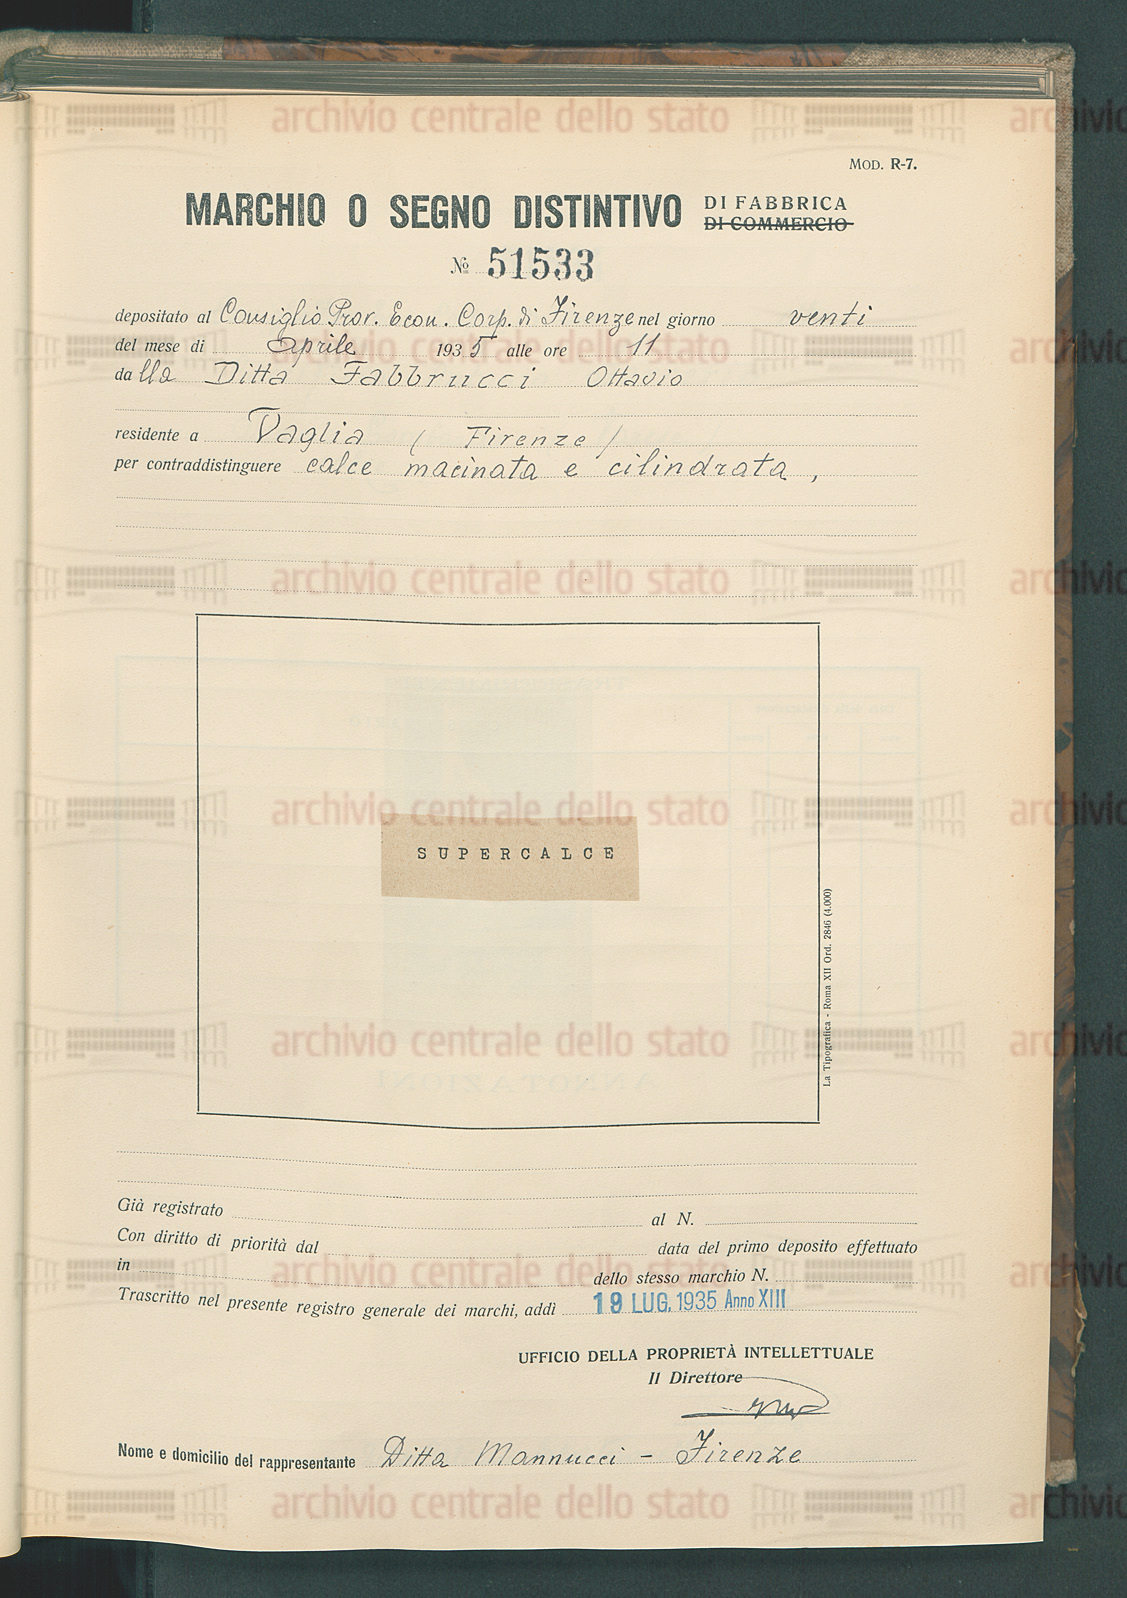 MOD. R-7.
MARCHIO O SEGNO DISTINTIVO DI FABBRICA
DI COMMERCIO
No 51533
depositato al Consiglio Prov. Econ. Corp. di Firenze nel giorno venti
del mese di Aprile 1935 alle ore 11
dalla Ditta Fabbrucci Ottavio
residente a Vaglia (Firenze)
per contraddistinguere calce macinata e cilindrata,
SUPERCALCE
La Tipografica - Roma XII Ord. 2846 (4.000)
Già registrato al N.
Con diritto di priorità dal data del primo deposito effettuato
in dello stesso marchio N.
Trascritto nel presente registro generale dei marchi, addì 19 LUG. 1935 Anno XIII
UFFICIO DELLA PROPRIETÀ INTELLETTUALE
Il Direttore
Nome e domicilio del rappresentante Ditta Mannucci - Firenze
archivio centrale dello stato